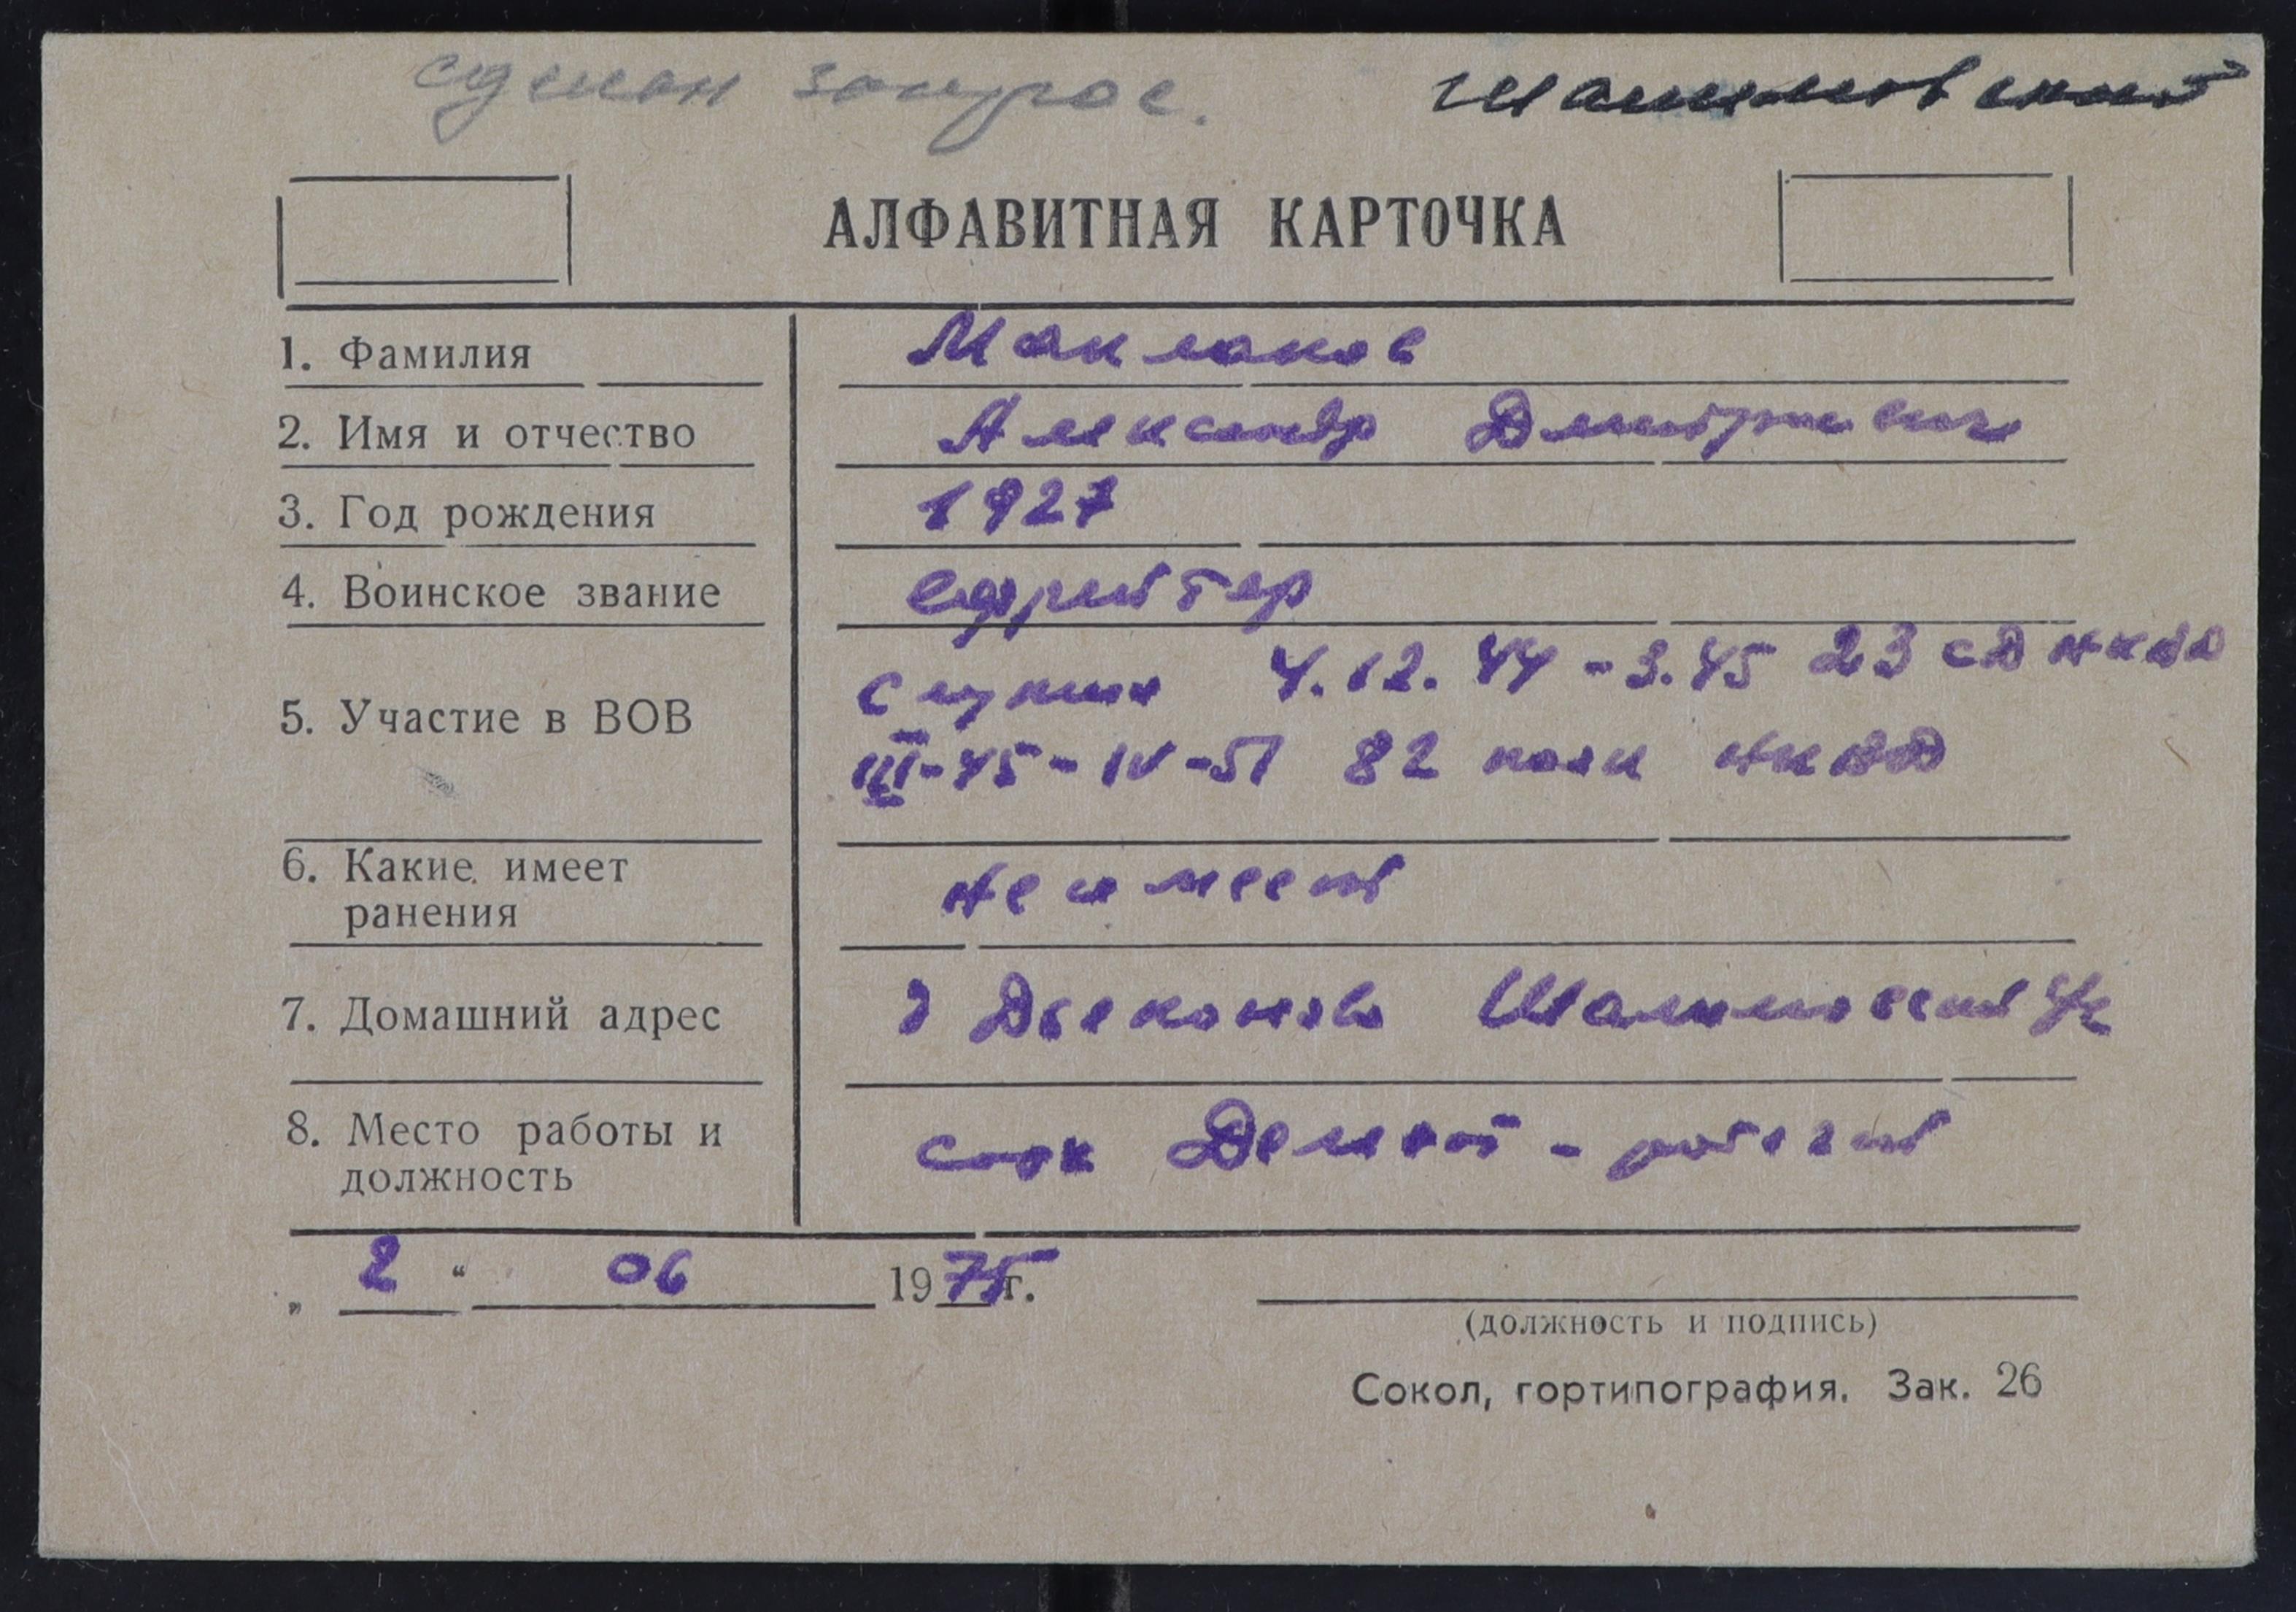 сделан запрос. Шапшинский
АЛФАВИТНАЯ КАРТОЧКА
1. Фамилия Маклаков
2. Имя и отчество Александр Дмитриевич
3. Год рождения 1927
4. Воинское звание ефрейтор
5. Участие в ВОВ служил 4.12.44 - 3.45 23 сд НКВД
III-45 - IV-51 82 полк НКВД
6. Какие имеет ранения не имеет
7. Домашний адрес д Дьяконово
8. Место работы и должность рабочий
„ 2 “ 06 1975 г.
(должность и подпись)
Сокол, гортипография. Зак. 26